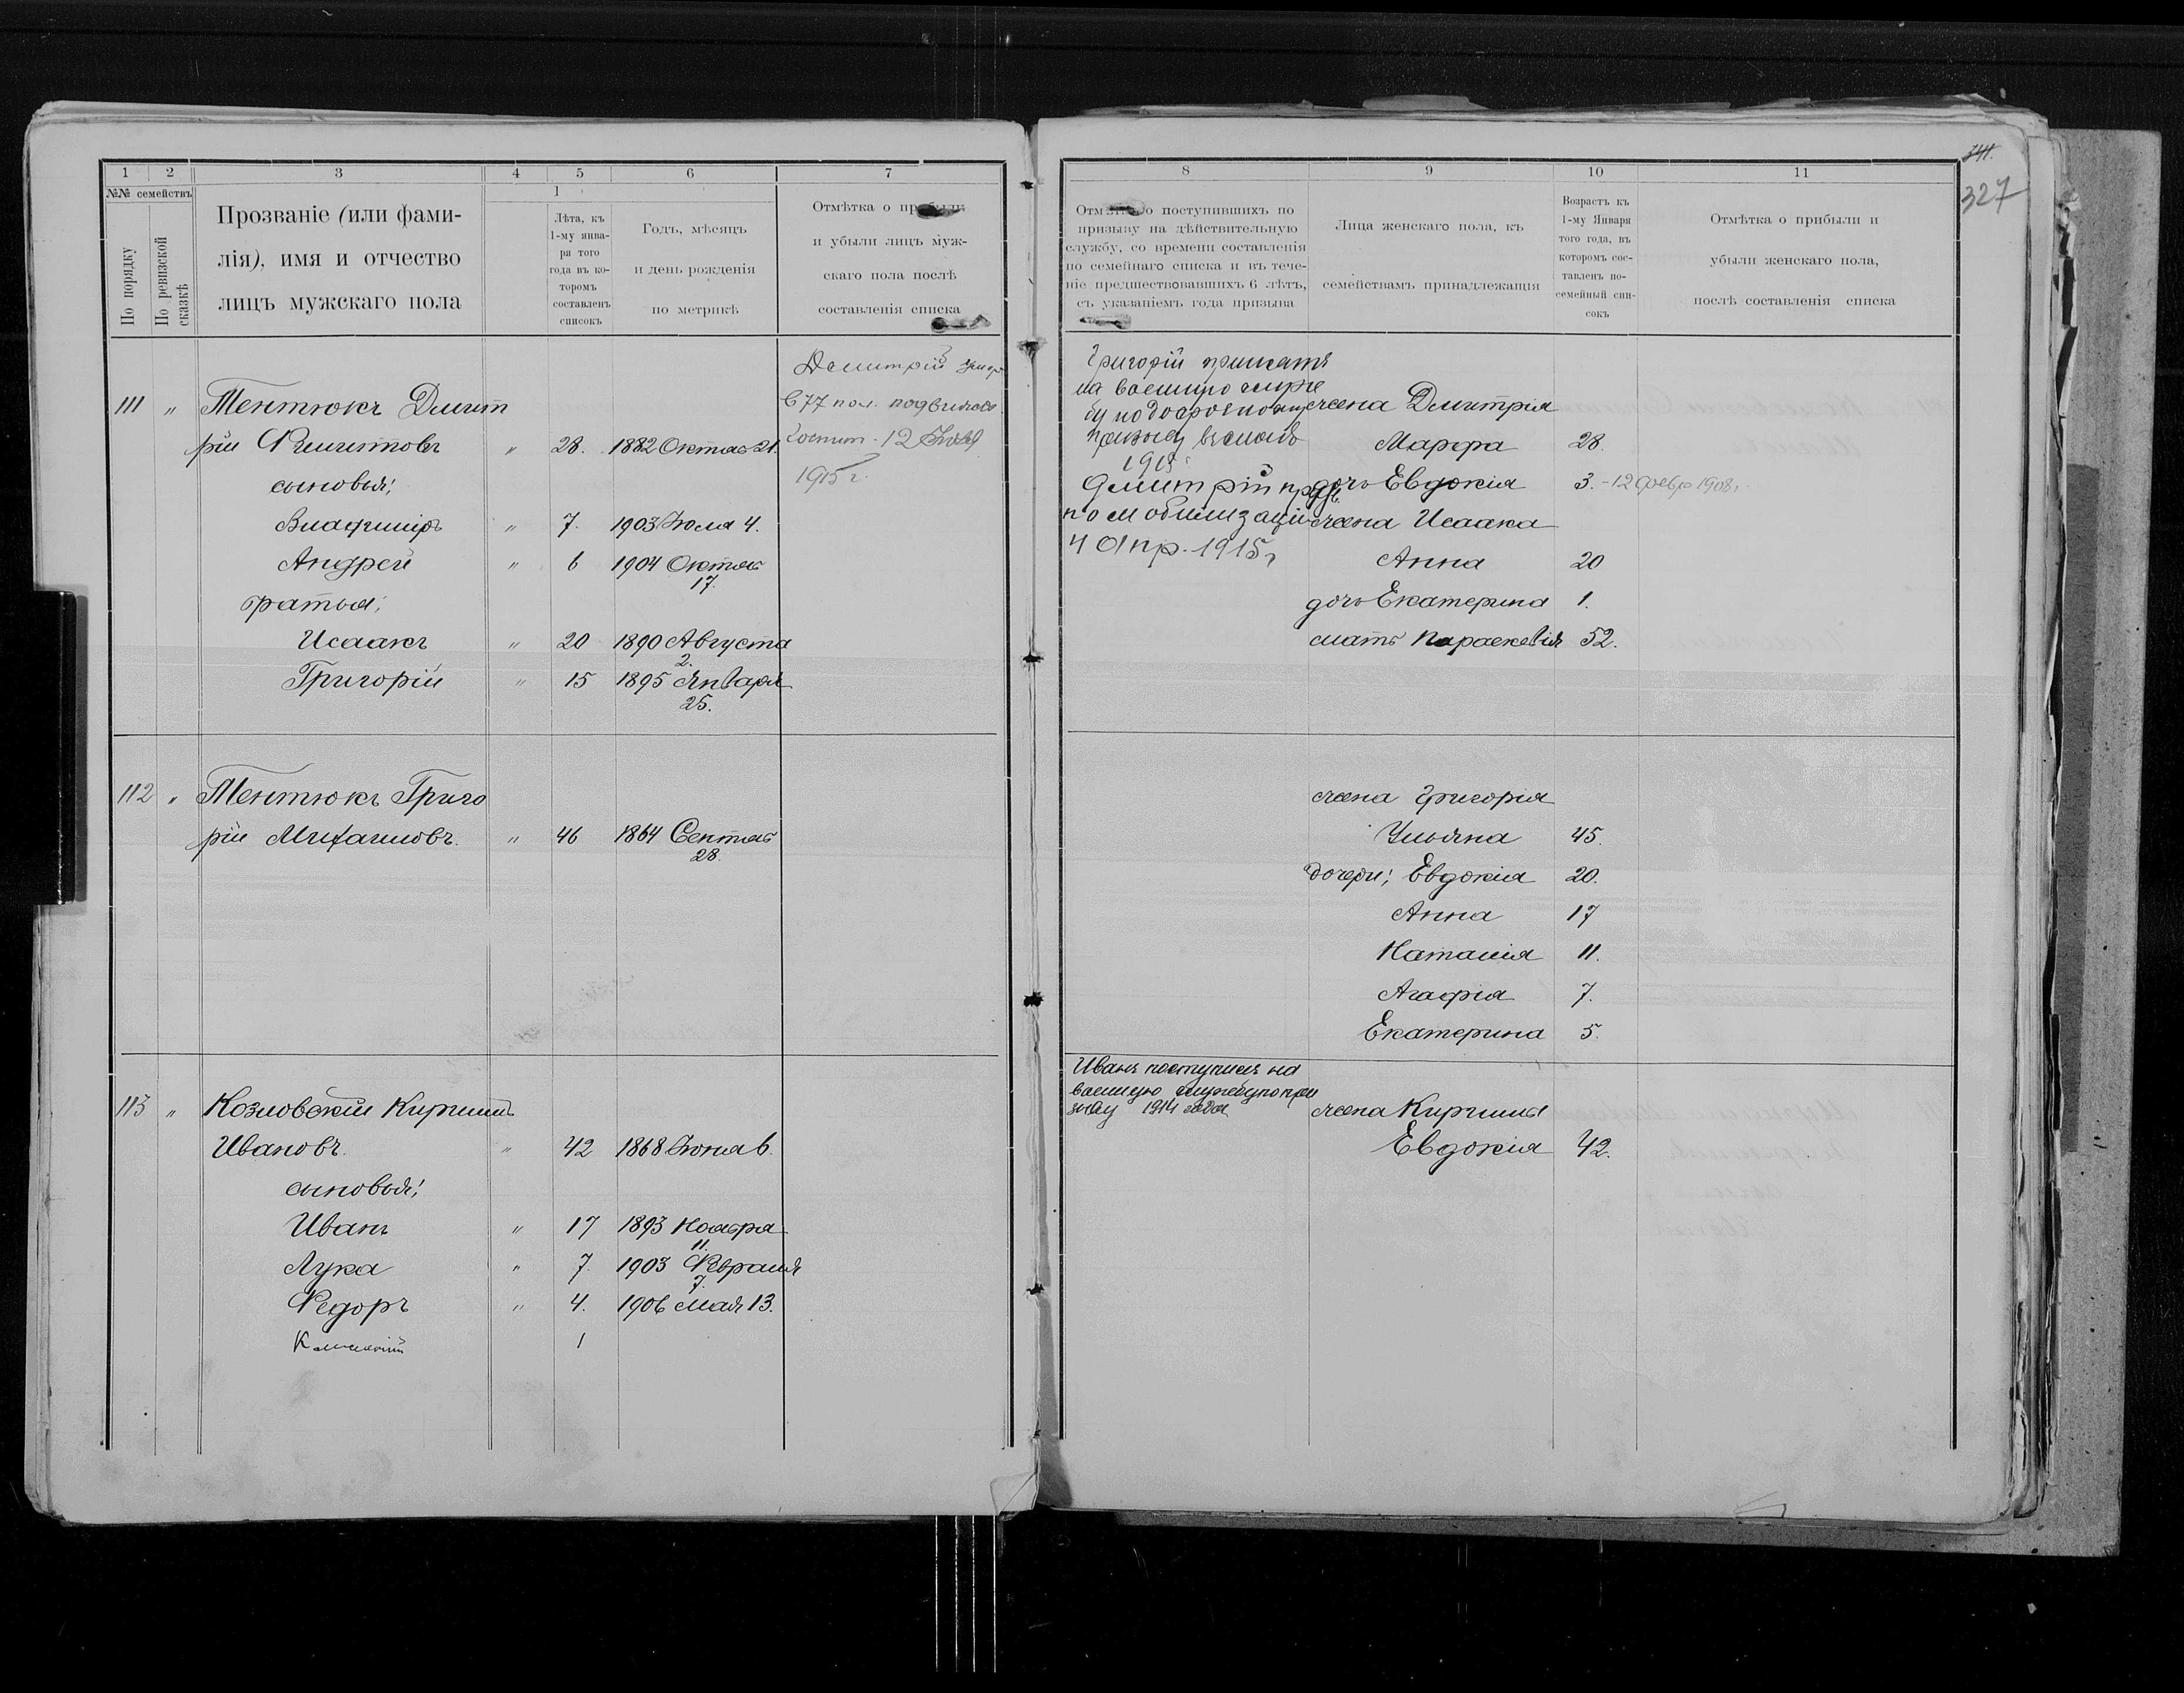 1 2 3 4 5 6 7
№№ семействъ
По порядку
По ревизской сказкѣ
Прозваніе (или фами-
лія), имя и отчество
лицъ мужскаго пола
1
Лѣта, къ
1-му янва-
ря того
года въ ко-
торомъ
составленъ
списокъ
Годъ, мѣсяцъ
и день рожденія
по метрикѣ
Отмѣтка о прибыли
и убыли лицъ муж-
скаго пола послѣ
составленія списка
Димитрій умеръ
в 77 пол. подвижном
госпит. 12 Іюля
1915 г.
111 " Тентюкъ Дмит
рій Филиповъ " 28. 1882 Октяб 21.
сыновья;
Владиміръ " 7. 1903 Іюля 4.
Андрей " 6 1904 Октяб
17.
братья;
Исаакъ " 20 1890 Августа
2.
Григорій " 15 1895 Января
25.
112 " Тентюкъ Григо
рій Михаиловъ. " 46 1864 Сентяб
28.
113 " Козловскій Кириллъ
Ивановъ. " 42 1868 Іюня 6.
сыновья;
Иванъ " 17 1893 Ноября
11.
Лука " 7. 1903 Февраля
7.
Федоръ " 4. 1906 Мая 13.
1
341.
327
8 9 10 11
Отмѣтка о поступившихъ по
призыву на дѣйствительную
службу, со времени составленія
по семейнаго списка и въ тече-
ніе предшествовавшихъ 6 лѣтъ,
съ указаніемъ года призыва
Лица женскаго пола, къ
семействамъ принадлежащія
Возрастъ къ
1-му Января
того года, въ
которомъ сос-
тавленъ по-
семейный спи-
сокъ
Отмѣтка о прибыли и
убыли женскаго пола,
послѣ составленія списка
Григорій принятъ
на военную служ
бу по досрочному
призыву въ маѣ
1915
Дмитрій призв.
по мобилизаціи
4 Апр. 1915 г
жена Дмитрія
Марфа 28.
дочь Евдокія 3. - 12 февр 1908 г.
жена Исаака
Анна 20
дочь Екатерина 1.
мать Параскевія 52.
жена Григорія
Ульяна 45.
дочери; Евдокія 20.
Анна 17
Наталія 11.
Агафія 7.
Екатерина 5.
Иванъ поступилъ на
военную службу по при
зыву 1914 года
жена Кирилла
Евдокія 42.